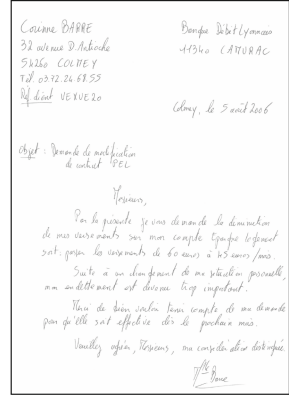 Corinne BARRE
32 avenue D'Antioche
54260 COLMEY
Tél. 03.72.24.68.55
Réf client VEXUE20
Banque Débit Lyonnais
11340 CAMURAC
Colmey, le 5 août 2006
Objet : Demande de modification
de contrat PEL
Monsieur,
Par la présente je vous demande la diminution
de mes versements sur mon compte épargne logement
soit, passer les versements de 60 euros à 45 euros / mois.
Suite à un changement de ma situation personnelle,
mon endettement est devenu trop important.
Merci de bien vouloir tenir compte de ma demande
pour qu'elle soit effective dès le prochain mois.
Veuillez agréer, Monsieur, ma considération distinguée.
Mlle Barre